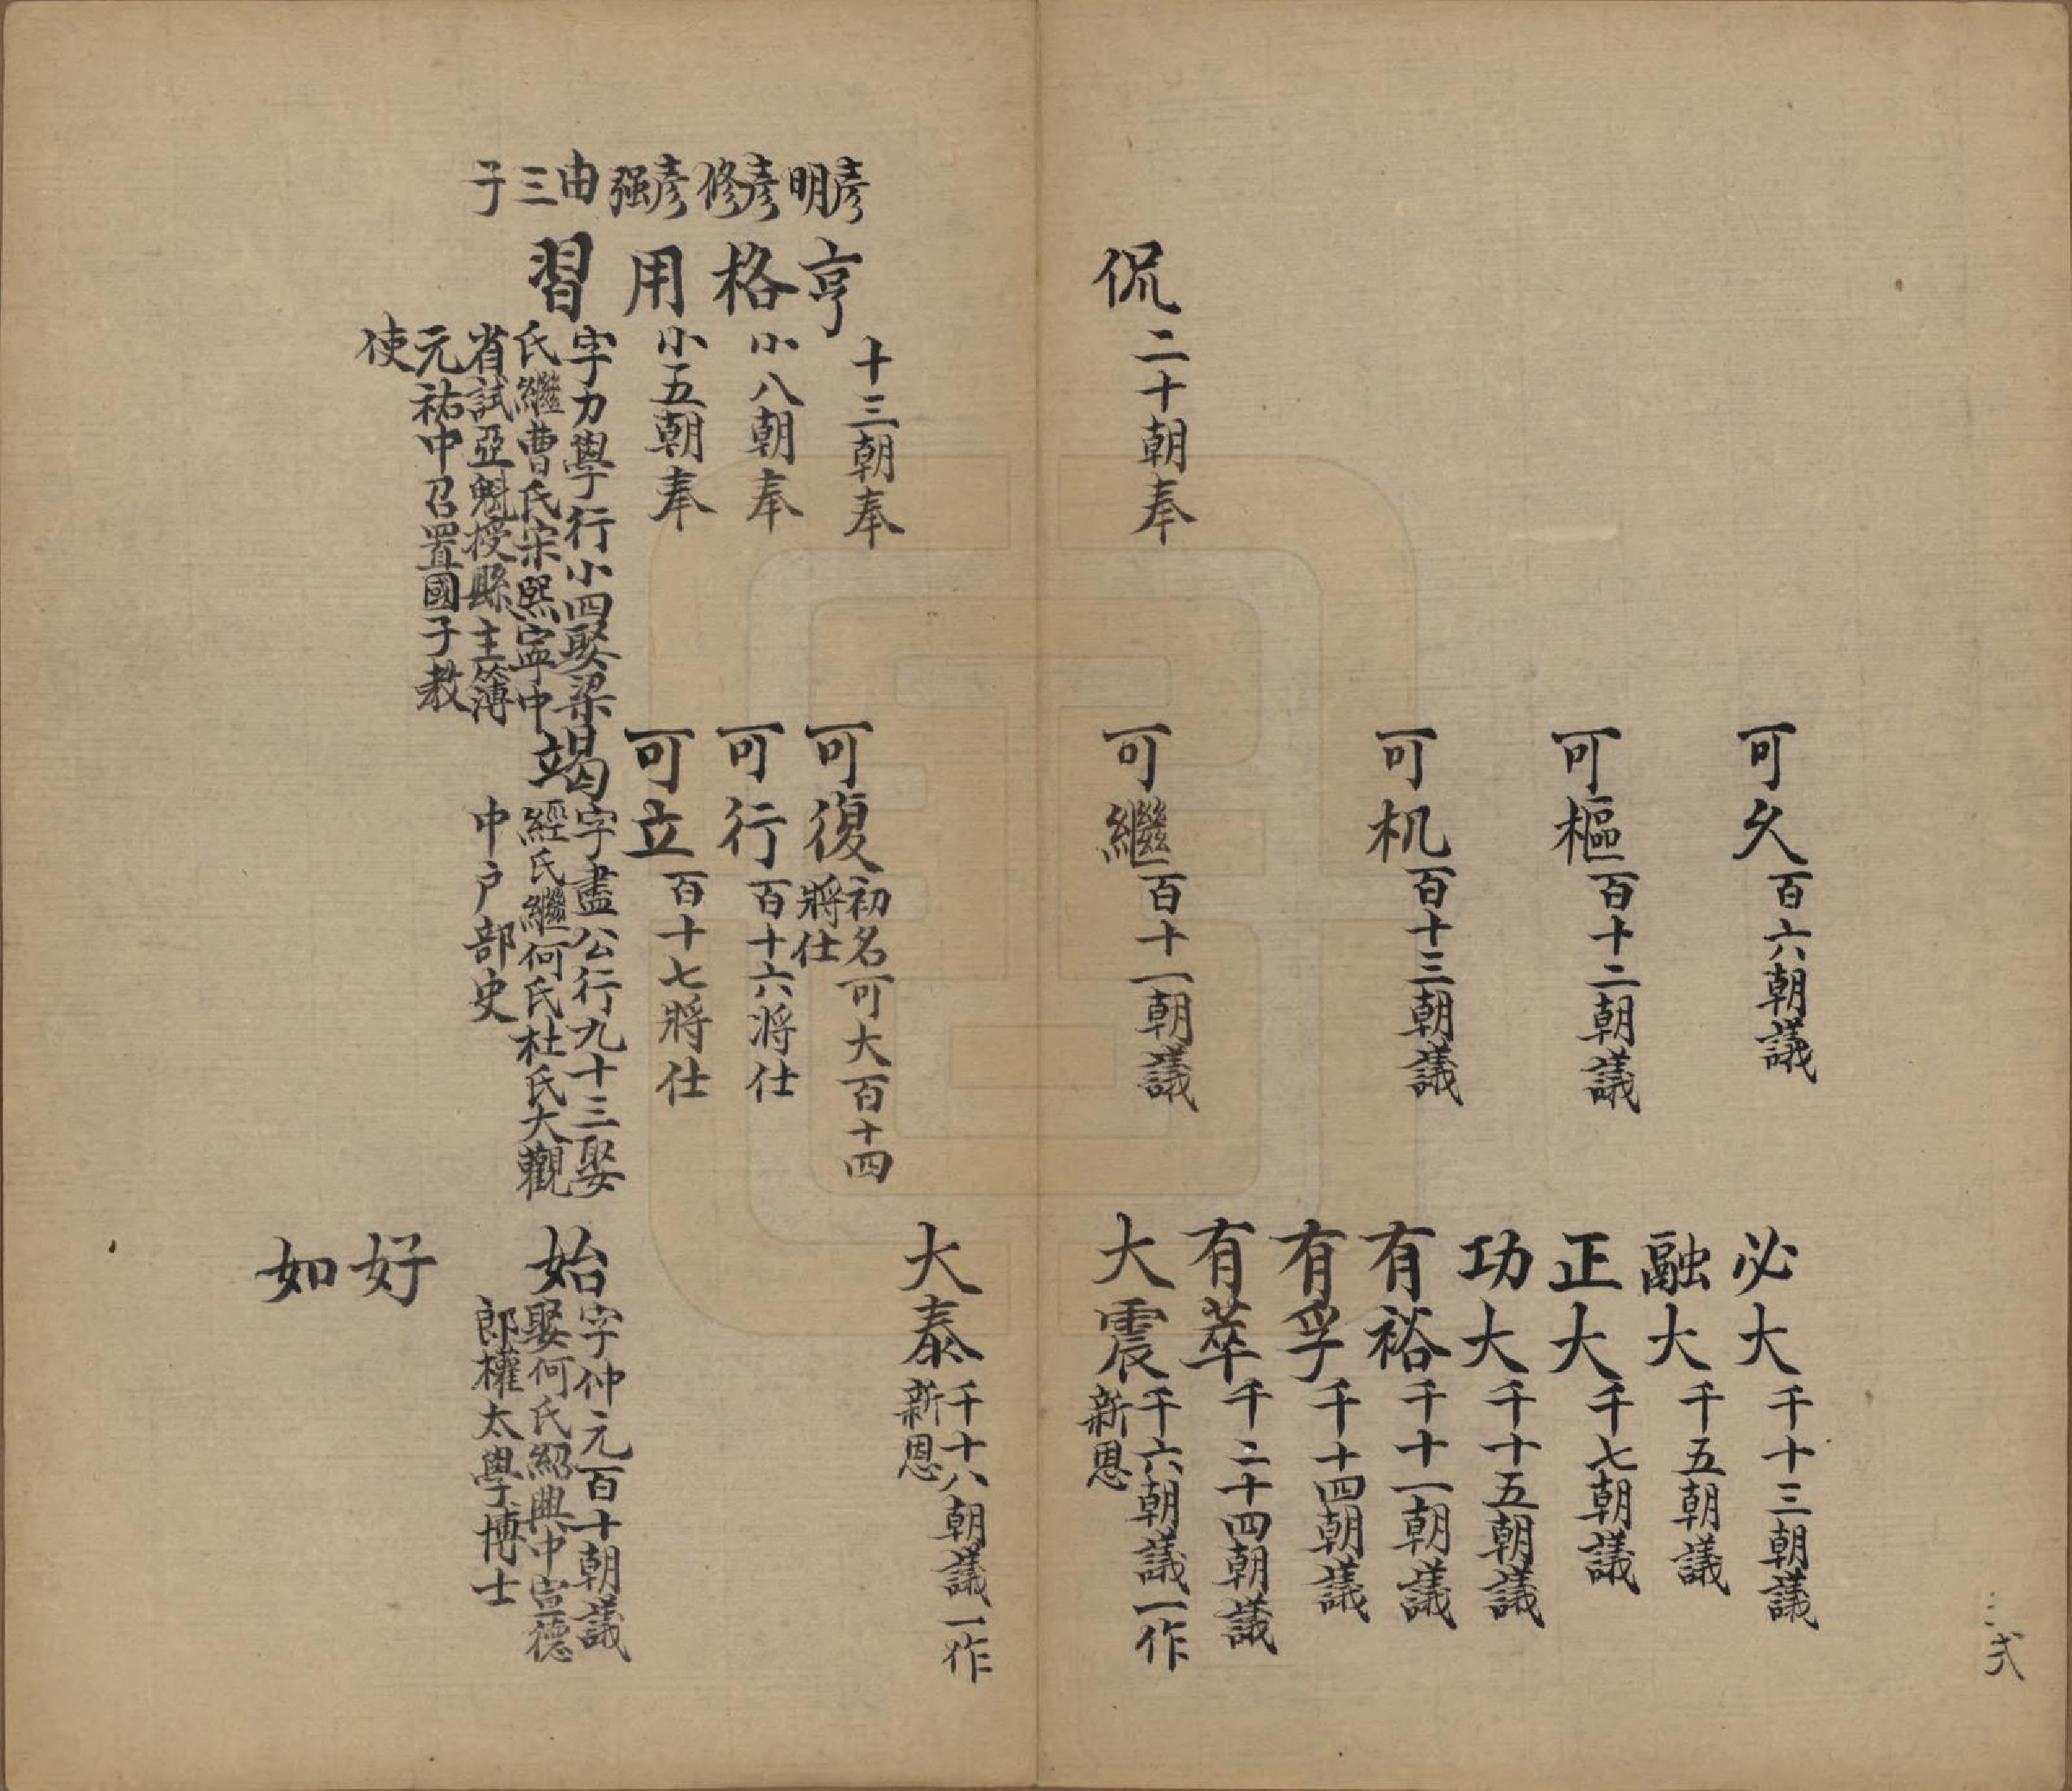 可久百六朝議
可樞百十二朝議
可机百十三朝議
侃二十朝奉
可繼百十一朝議
必大千十三朝議
融大千五朝議
正大千七朝議
功大千十五朝議
有裕千十一朝議
有孚千十四朝議
有萃千二十四朝議
大震千六朝議一作
新恩
大泰千十八朝議一作
新恩
彥明
亨十三朝奉
可復初名可大百十四
將仕
彥修
格小八朝奉
可行百十六將仕
彥强
用小五朝奉
可立百十七將仕
由三子
習字力學行小四娶梁
氏繼曹氏宋熙寧中
省試亞魁授縣主簿
元祐中召置國子教
使
竭字盡公行九十三娶
經氏繼何氏杜氏大觀
中户部史
始字仲元百十朝議
娶何氏紹興中宣德
郎權太學博士
好
如
弍